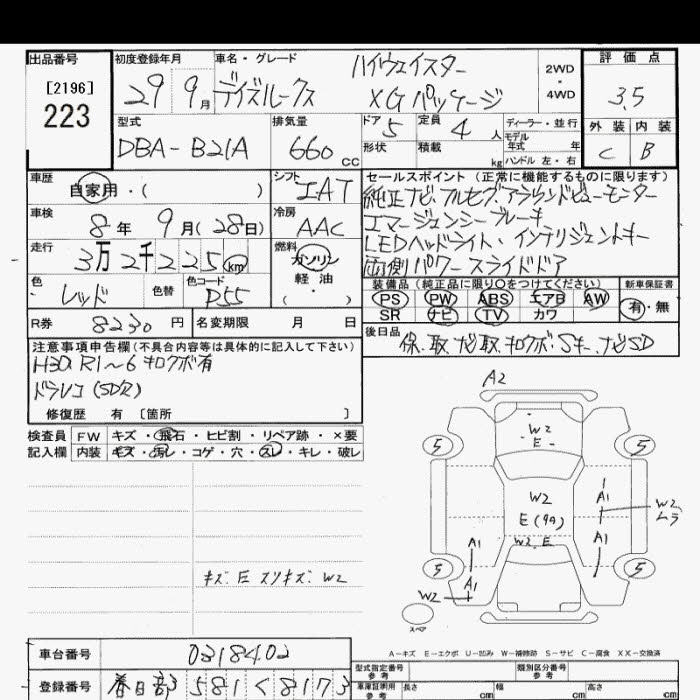 出品番号
[2196]
223
初度登録年月
29 9月
車名・グレード
ハイウェイスター
デイズルークス XGパッケージ
2WD
・
4WD
評価点
3.5
外装 内装
C B
型式
DBA-B21A
排気量
660 CC
ドア 5
定員 4 人
形状
積載 kg
ディーラー・並行
モデル
年式 年
ハンドル 左・右
車歴
自家用・( )
シフト
IAT
車検
8年 9月(28日)
冷房
AAC
走行
3万2千225km
燃料
ガソリン
軽油
( ・ )
色
レッド
色替
色コード
R券 8230 円
名変期限 月 日
セールスポイント (正常に機能するものに限ります)
純正ナビ・フルセグ・アラウンドビューモニター
エマージェンシーブレーキ
LEDヘッドライト・インテリジェントキー
両側パワースライドドア
装備品 (純正品に限り○をつけてください)
新車保証書
PS PW ABS エアB AW
SR ナビ TV カワ
有・無
後日品
保.取.ナビ取.キロクボ.Sキー.ナビSD
注意事項申告欄(不具合内容等は具体的に記入して下さい)
H30. R1～6 キロクボ有
ドラレコ(SD欠)
修復歴 有 〔箇所 〕
検査員
記入欄
FW キズ・飛石・ヒビ割・リペア跡・×要
内装 キズ・汚レ・コゲ・穴・スレ・キレ・破レ
キズ.E スリキズ.W2
A2
W2
E
5
5
W2
E(99)
A1
W2
ムラ
A1
W2.E
A1
5
5
A1
W2
スペア
A-キズ E-エクボ U-凹み W-補修跡 S-サビ C-腐食 XX-交換済
車台番号
0318402
登録番号
春日部 581 く 8173
型式指定番号
参考
類別区分番号
参考
車庫証明用
参考
長さ cm
幅 cm
高さ cm